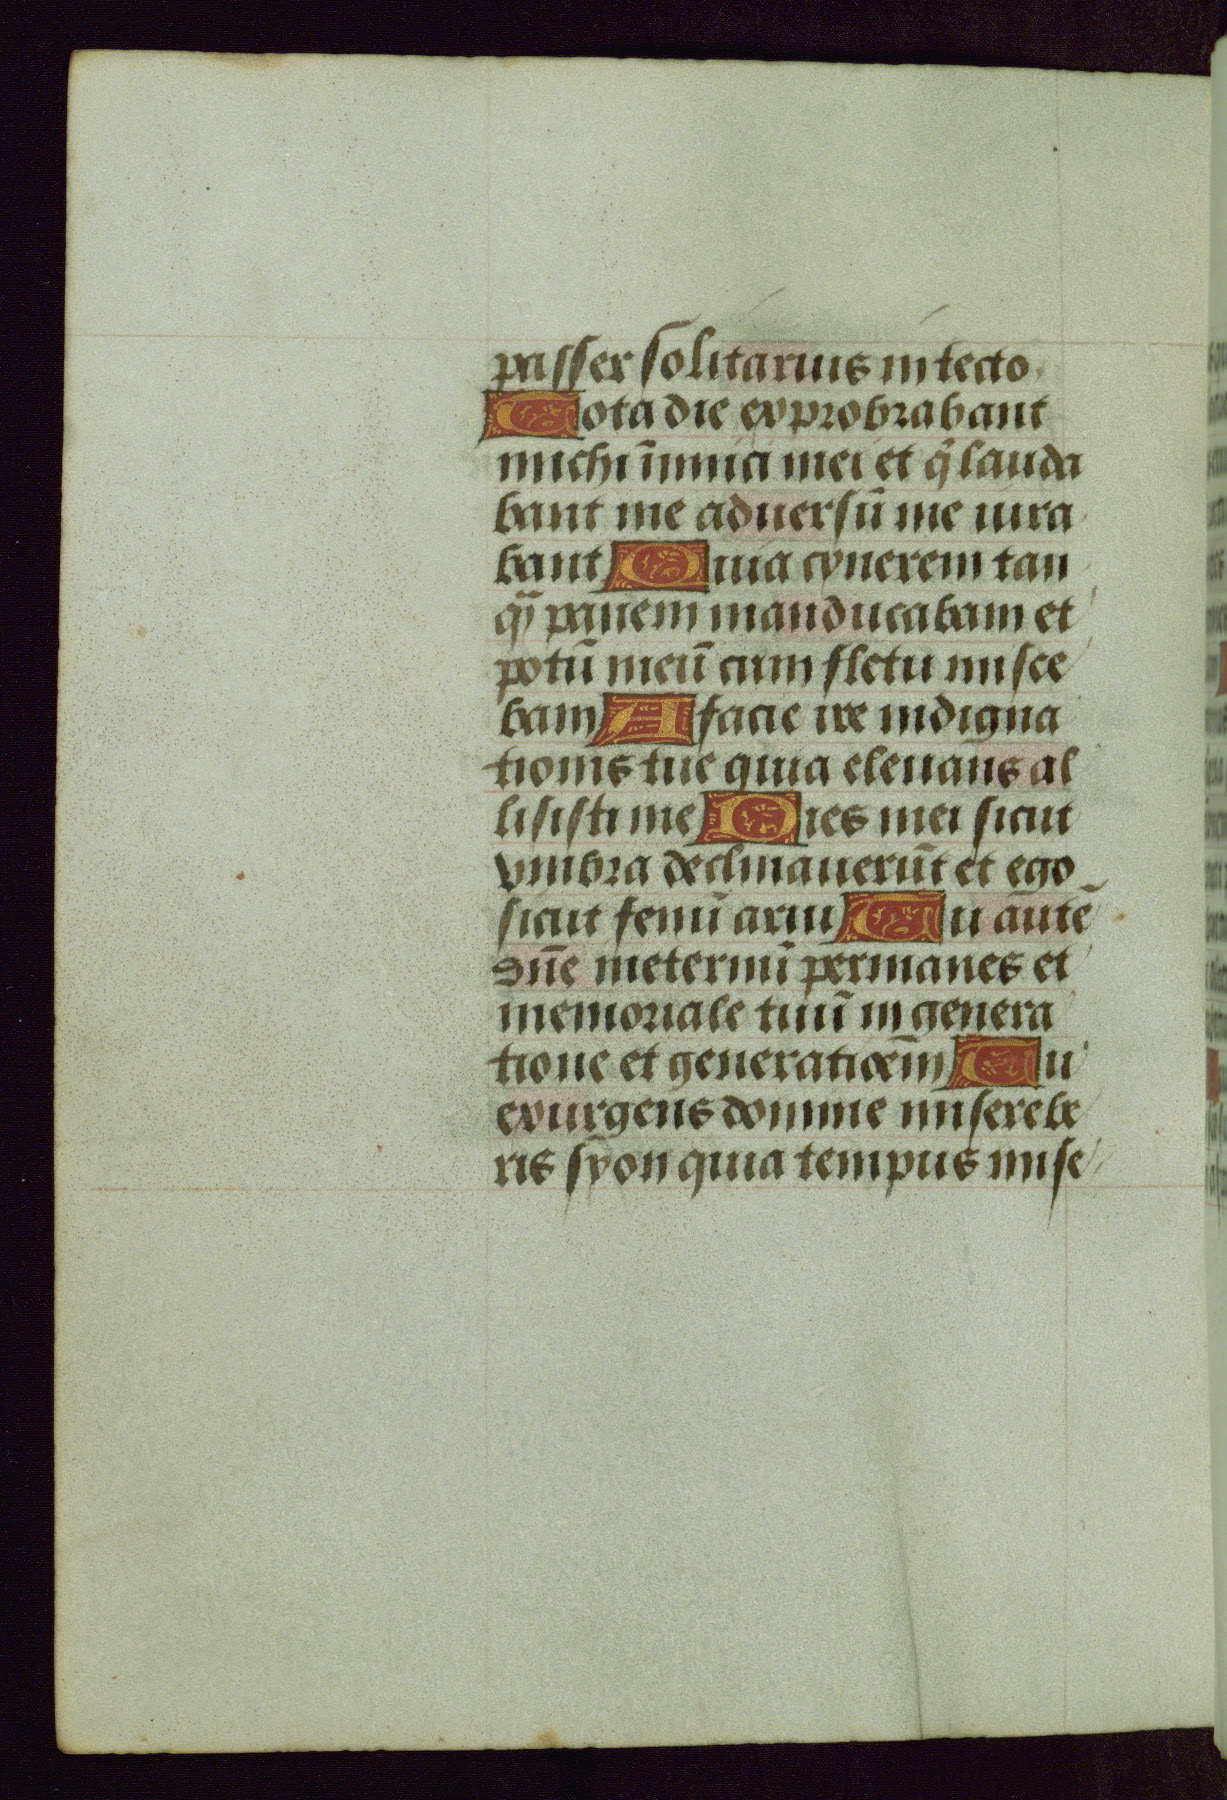 passer solitarius in tecto.
Tota die exprobrabant
michi īimici mei et q̄ lauda
bant me aduersū me iura
bant Quia cynerem tan
q̄ panem manducabam et
potū meū cum fletu misce
bam A facie ire indigna
tionis tue quia eleuans al
lisisti me Dies mei sicut
vmbra declinauerūt et ego
sicut fenū arui Tu autē
dn̄e ineternū permanes et
memoriale tuū in genera
tione et generatiōem Tu
exurgens domine miserebe
ris syon quia tempus mise